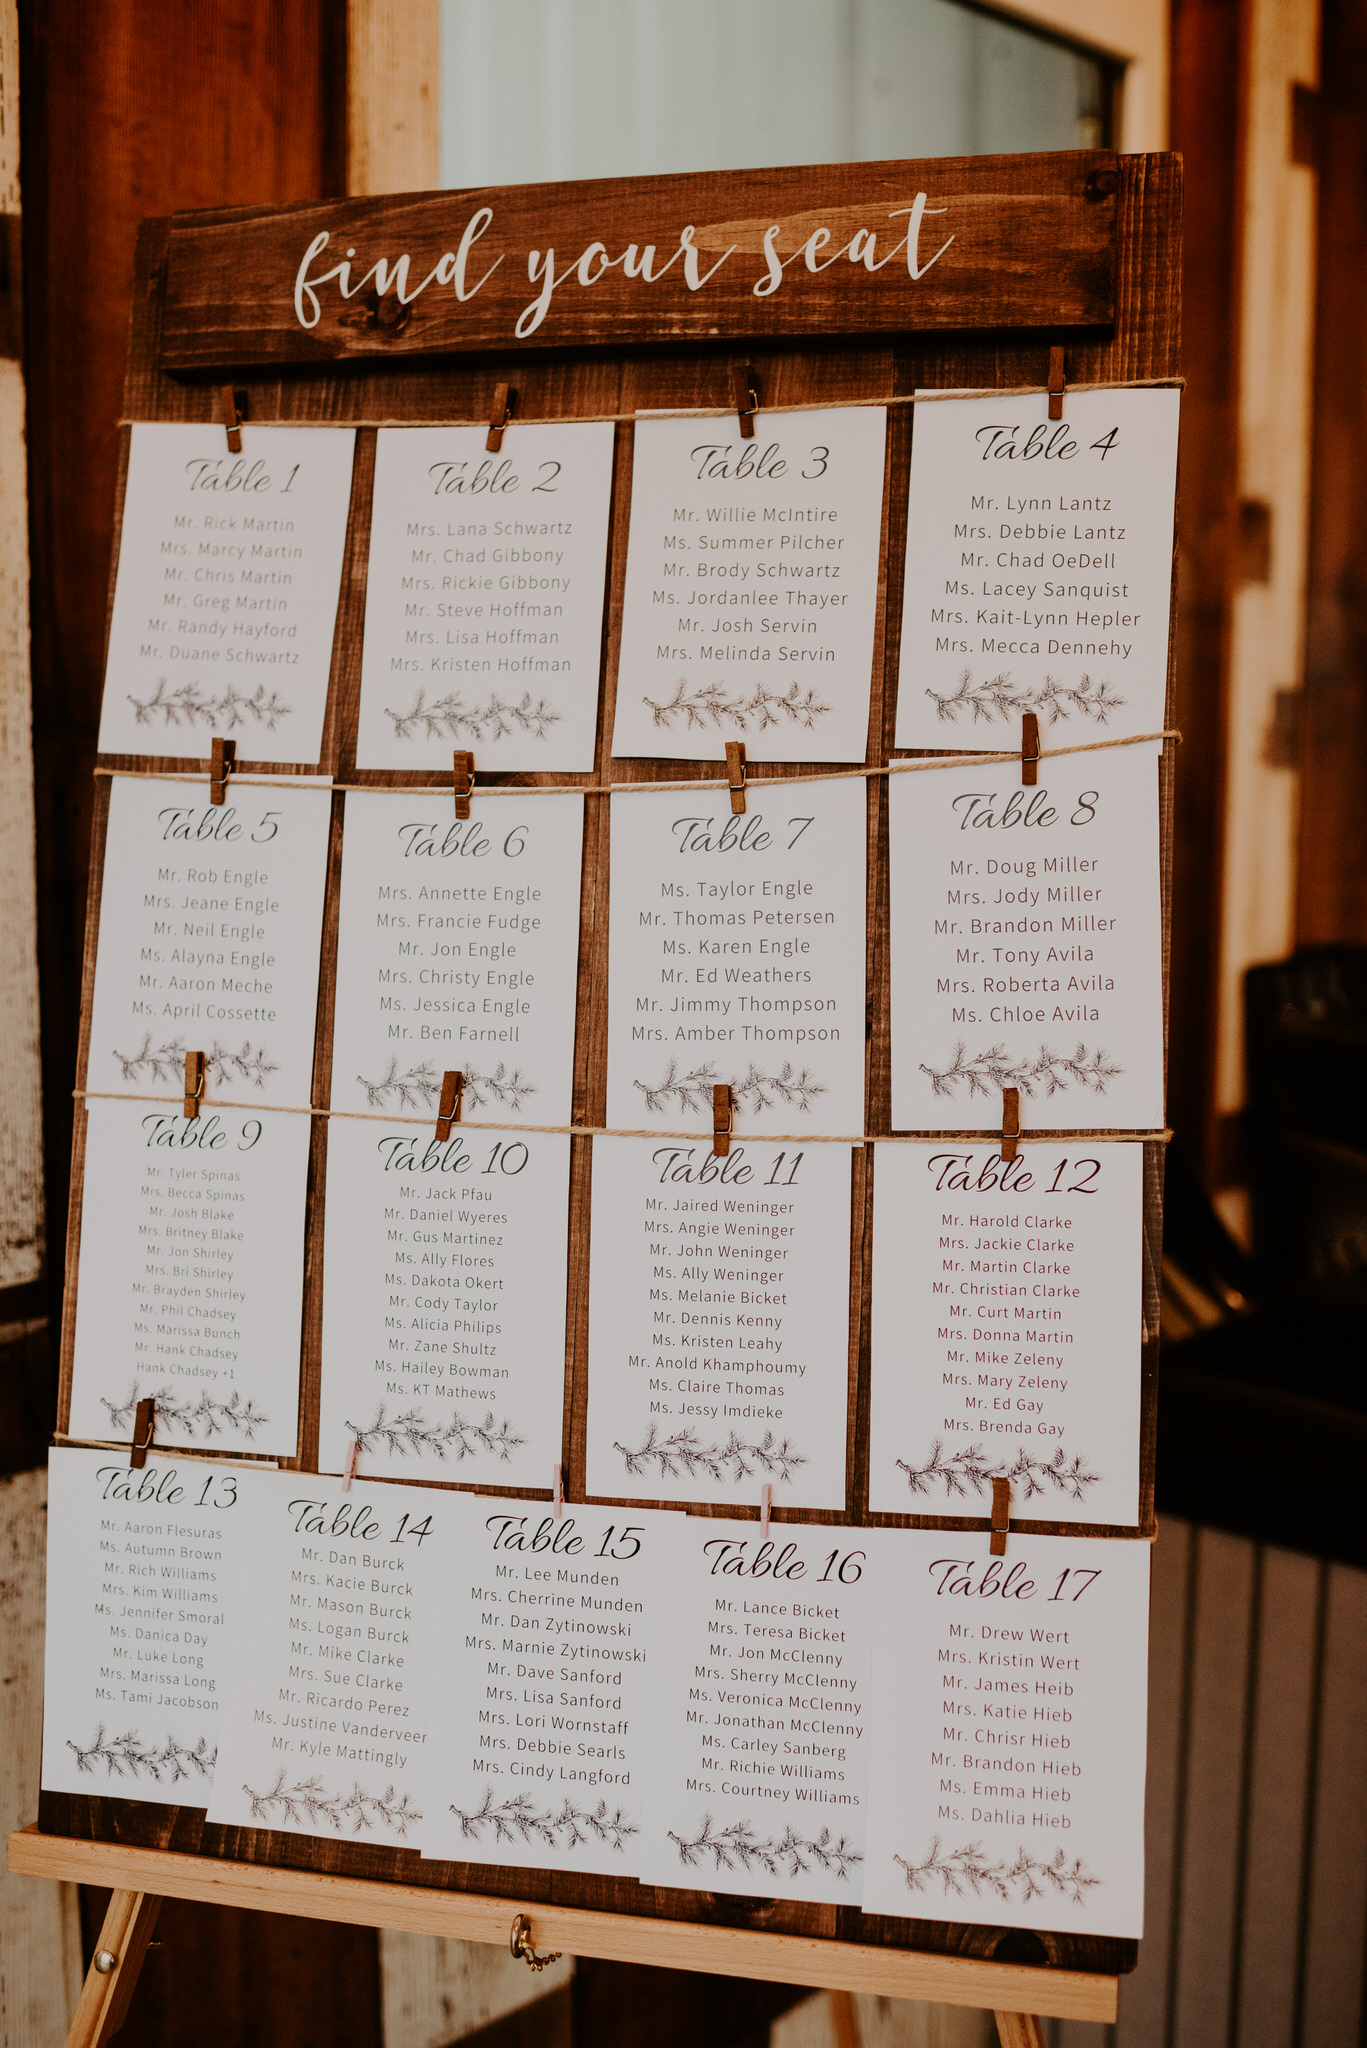 find your seat
Table 1
Mr. Rick Martin
Mrs. Marcy Martin
Mr. Chris Martin
Mr. Greg Martin
Mr. Randy Hayford
Mr. Duane Schwartz
Table 2
Mrs. Lana Schwartz
Mr. Chad Gibbony
Mrs. Rickie Gibbony
Mr. Steve Hoffman
Mrs. Lisa Hoffman
Mrs. Kristen Hoffman
Table 3
Mr. Willie McIntire
Ms. Summer Pilcher
Mr. Brody Schwartz
Ms. Jordanlee Thayer
Mr. Josh Servin
Mrs. Melinda Servin
Table 4
Mr. Lynn Lantz
Mrs. Debbie Lantz
Mr. Chad OeDell
Ms. Lacey Sanquist
Mrs. Kait-Lynn Hepler
Mrs. Mecca Dennehy
Table 5
Mr. Rob Engle
Mrs. Jeane Engle
Mr. Neil Engle
Ms. Alayna Engle
Mr. Aaron Meche
Ms. April Cossette
Table 6
Mrs. Annette Engle
Mrs. Francie Fudge
Mr. Jon Engle
Mrs. Christy Engle
Ms. Jessica Engle
Mr. Ben Farnell
Table 7
Ms. Taylor Engle
Mr. Thomas Petersen
Ms. Karen Engle
Mr. Ed Weathers
Mr. Jimmy Thompson
Mrs. Amber Thompson
Table 8
Mr. Doug Miller
Mrs. Jody Miller
Mr. Brandon Miller
Mr. Tony Avila
Mrs. Roberta Avila
Ms. Chloe Avila
Table 9
Mr. Tyler Spinas
Mrs. Becca Spinas
Mr. Josh Blake
Mrs. Britney Blake
Mr. Jon Shirley
Mrs. Bri Shirley
Mr. Brayden Shirley
Mr. Phil Chadsey
Ms. Marissa Bunch
Mr. Hank Chadsey
Hank Chadsey +1
Table 10
Mr. Jack Pfau
Mr. Daniel Wyeres
Mr. Gus Martinez
Ms. Ally Flores
Ms. Dakota Okert
Mr. Cody Taylor
Ms. Alicia Philips
Mr. Zane Shultz
Ms. Hailey Bowman
Ms. KT Mathews
Table 11
Mr. Jaired Weninger
Mrs. Angie Weninger
Mr. John Weninger
Ms. Ally Weninger
Ms. Melanie Bicket
Mr. Dennis Kenny
Ms. Kristen Leahy
Mr. Anold Khamphoumy
Ms. Claire Thomas
Ms. Jessy Imdieke
Table 12
Mr. Harold Clarke
Mrs. Jackie Clarke
Mr. Martin Clarke
Mr. Christian Clarke
Mr. Curt Martin
Mrs. Donna Martin
Mr. Mike Zeleny
Mrs. Mary Zeleny
Mr. Ed Gay
Mrs. Brenda Gay
Table 13
Mr. Aaron Flesuras
Ms. Autumn Brown
Mr. Rich Williams
Mrs. Kim Williams
Ms. Jennifer Smoral
Ms. Danica Day
Mr. Luke Long
Mrs. Marissa Long
Ms. Tami Jacobson
Table 14
Mr. Dan Burck
Mrs. Kacie Burck
Mr. Mason Burck
Ms. Logan Burck
Mr. Mike Clarke
Mrs. Sue Clarke
Mr. Ricardo Perez
Ms. Justine Vanderveer
Mr. Kyle Mattingly
Table 15
Mr. Lee Munden
Mrs. Cherrine Munden
Mr. Dan Zytinowski
Mrs. Marnie Zytinowski
Mr. Dave Sanford
Mrs. Lisa Sanford
Mrs. Lori Wornstaff
Mrs. Debbie Searls
Mrs. Cindy Langford
Table 16
Mr. Lance Bicket
Mrs. Teresa Bicket
Mr. Jon McClenny
Mrs. Sherry McClenny
Ms. Veronica McClenny
Mr. Jonathan McClenny
Ms. Carley Sanberg
Mr. Richie Williams
Mrs. Courtney Williams
Table 17
Mr. Drew Wert
Mrs. Kristin Wert
Mr. James Heib
Mrs. Katie Hieb
Mr. Chrisr Hieb
Mr. Brandon Hieb
Ms. Emma Hieb
Ms. Dahlia Hieb